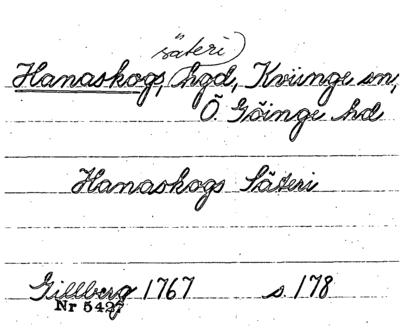 säteri
Hanaskogs, hgd, Kviinge sn,
Ö. Göinge hd
Hanaskogs Säteri
Gillberg 1767 s. 178
Nr 5427